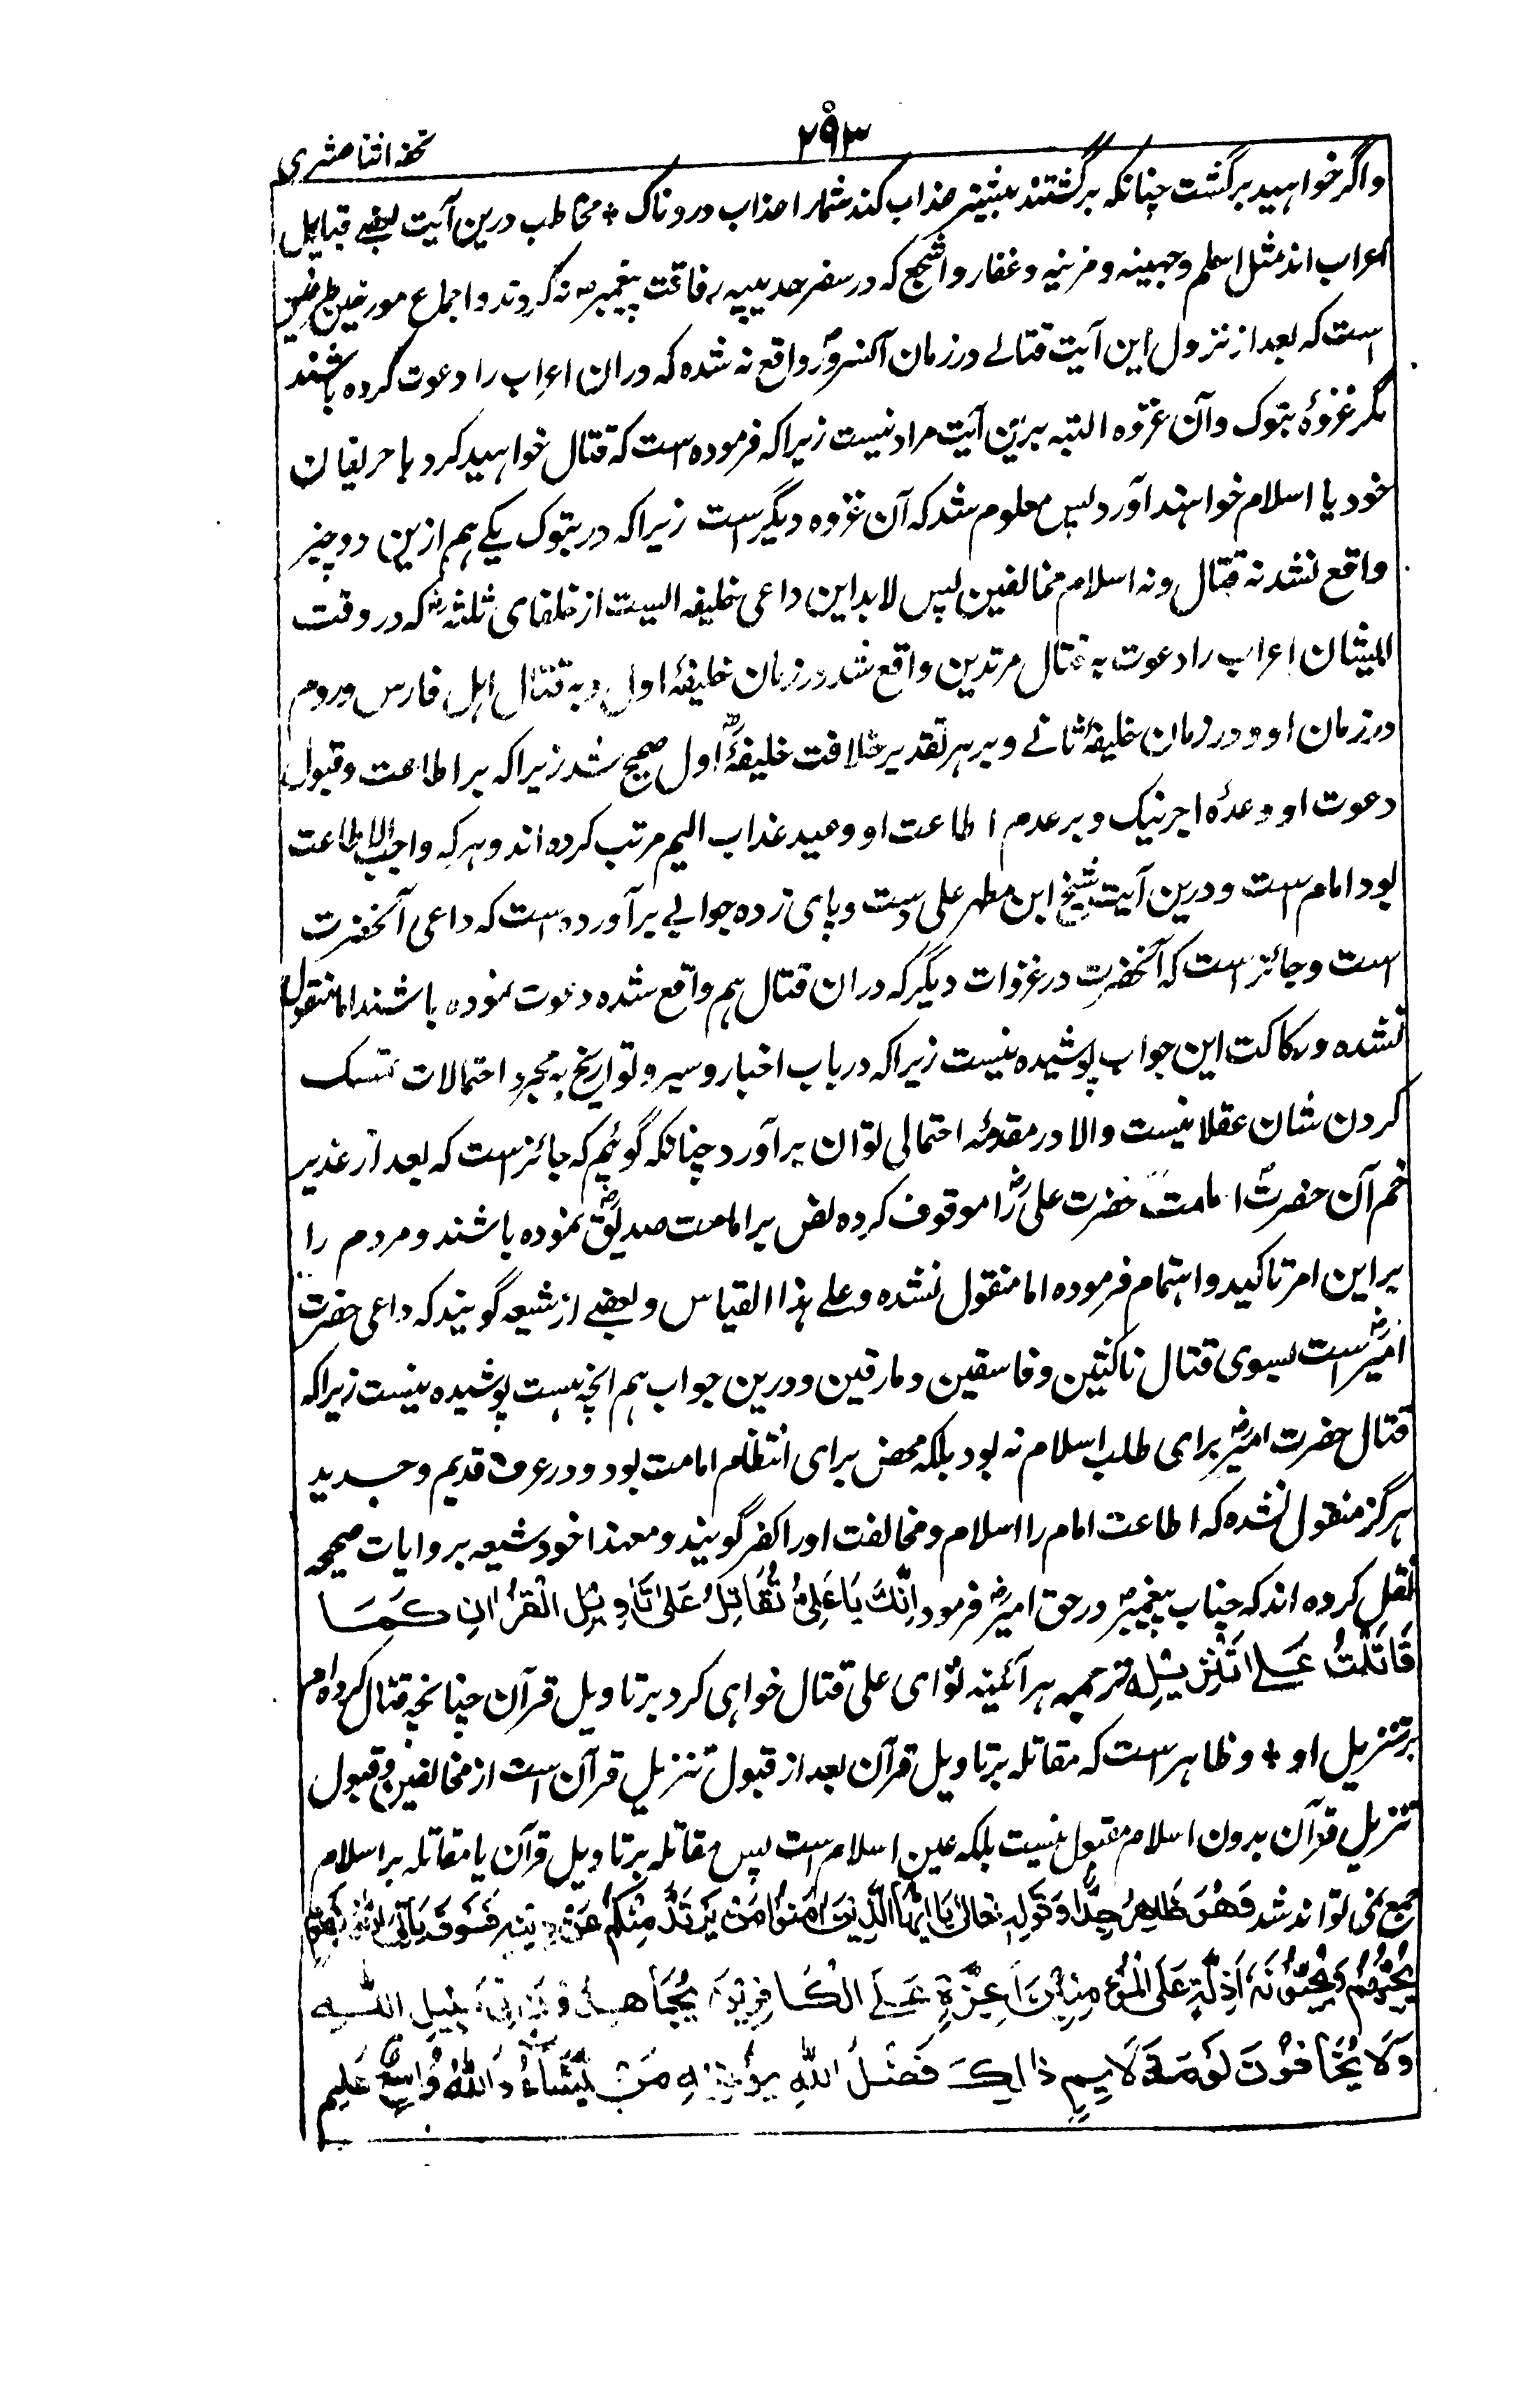 ۲۹۳
تحفه اثنا عشری
و اگر خواهید برگشت چنانکه برگشتند پیشتر عذاب کند شمارا عذاب دردناک + مخاطب درین آیت بعضے قبایل
اعراب اند مثل اسلم و جهینه و مزینه و غفار و اشجع که در سفر حدیبیه رفاقت پیغمبرص نه کردند و اجماع مورخین طرفین
است که بعد از نزول این آیت قتالے در زمان آنسرورص واقع نه شده که دران اعراب را دعوت کرده باشند
مگر غزوهٔ تبوک و آن غزوه البته برین آیت مراد نیست زیرا که فرموده است که قتال خواهید کرد با حریفان
خود یا اسلام خواهند آورد پس معلوم شد که آن غزوه دیگر است زیرا که در تبوک یکے هم ازین دو چیز
واقع نشد نه قتال و نه اسلام مخالفین پس لابد این داعی خلیفه ایست از خلفای ثلثهرض که در وقت
ایشان اعراب را دعوت به قتال مرتدین واقع شد در زمان خلیفهٔ اول و به قتال اهل فارس و روم
در زمان او و در زمان خلیفهٔ ثانے و بر هر تقدیر خلافت خلیفهٔ اول صحیح شد زیرا که بر اطاعت و قبول
دعوت او وعدهٔ اجر نیک و بر عدم اطاعت او وعید عذاب الیم مرتب کرده اند و هر که واجب الاطاعت
بود امام است و درین آیت شیخ ابن مطهر علی دست و پای زده جوابے برآورده است که داعی آنحضرت
است و جائز است که آنحضرت در غزوات دیگر که دران قتال هم واقع شده دعوت نموده باشند اما منقول
نشده و رکاکت این جواب پوشیده نیست زیرا که در باب اخبار و سیر و تواریخ به مجرد احتمالات تمسک
کردن شان عقلا نیست و الا در مقدمهٔ احتمالی توان برآورد چنانکه گوئیم که جائز است که بعد از غدیر
خم آن حضرتص امامت حضرت علیرض را موقوف کرده نص بر امامت صدیقرض نموده باشند و مردم را
بر این امر تاکید و اهتمام فرموده اما منقول نشده و علے هذا القیاس و بعضے از شیعه گویند که داعی حضرت
امیررض است بسوی قتال ناکثین و فاسقین و مارقین و درین جواب هم انچه هست پوشیده نیست زیرا که
قتال حضرت امیررض برای طلب اسلام نه بود بلکه محض برای انتظام امامت بود و در عرف قدیم و جدید
هرگز منقول نشده که اطاعت امام را اسلام و مخالفت او را کفر گویند و معهذا خود شیعه بروایات صحیحه
نقل کرده اند که جناب پیغمبرص در حق امیررض فرمود اِنَّكَ یَا عَلِیُّ تُقَاتِلُ عَلیٰ تَأوِیْلِ الْقُرْاٰنِ کَمَا
قَاتَلْتُ عَلےٰ تَنْزِیْلِهٖ ترجمه هر آئینه تو ای علی قتال خواهی کرد بر تاویل قرآن چنانچه قتال کرده ام
بر تنزیل او + و ظاهر است که مقاتله بر تاویل قرآن بعد از قبول تنزیل قرآن است از مخالفین و قبول
تنزیل قرآن بدون اسلام مقبول نیست بلکه عین اسلام است پس مقاتله بر تاویل قرآن با مقاتله بر اسلام
جمع نمی تواند شد فَهُوَ ظَاهِرٌ جِدًّا وَ قَوْلِهٖ تَعَالیٰ یَا اَیُّهَا الَّذِیْنَ اٰمَنُوْا مَنْ یَرْتَدَّ مِنْکُمْ عَنْ دِیْنِهٖ فَسَوْفَ یَأتِی اللهُ بِقَوْمٍ
یُحِبُّهُمْ وَ یُحِبُّوْنَهٗ اَذِلَّةٍ عَلَی الْمُؤْمِنِیْنَ اَعِزَّةٍ عَلَے الْکَافِرِیْنَ یُجَاهِدُوْنَ فِیْ سَبِیْلِ اللّٰهِ
وَ لَا یَخَافُوْنَ لَوْمَةَ لَایِمٍ ذَالِکَ فَضْلُ اللهِ یُؤْتِیْهِ مَنْ یَّشَآءُ وَ اللهُ وَاسِعٌ عَلِیْم